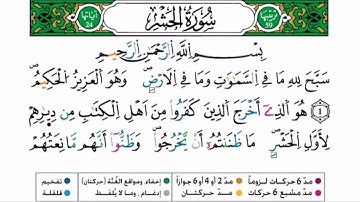 ترتيبها 59
سُورَةُ الْحَشْرِ
آياتها 24
بِسْمِ اللَّهِ الرَّحْمَٰنِ الرَّحِيمِ
سَبَّحَ لِلَّهِ مَا فِي السَّمَٰوَٰتِ وَمَا فِي الْأَرْضِ ۖ وَهُوَ الْعَزِيزُ الْحَكِيمُ
١ هُوَ الَّذِي أَخْرَجَ الَّذِينَ كَفَرُوا مِنْ أَهْلِ الْكِتَٰبِ مِن دِيَٰرِهِمْ
لِأَوَّلِ الْحَشْرِ ۚ مَا ظَنَنتُمْ أَن يَخْرُجُوا ۖ وَظَنُّوا أَنَّهُم مَّانِعَتُهُمْ
مدّ 6 حركات لزوماً مدّ 2 أو 4 أو 6 جوازاً إخفاء، ومواقع الغُنَّة (حركتان) تفخيم
مدّ مشبع 6 حركات مدّ حركتان إدغام، وما لا يُلفظ قلقلة